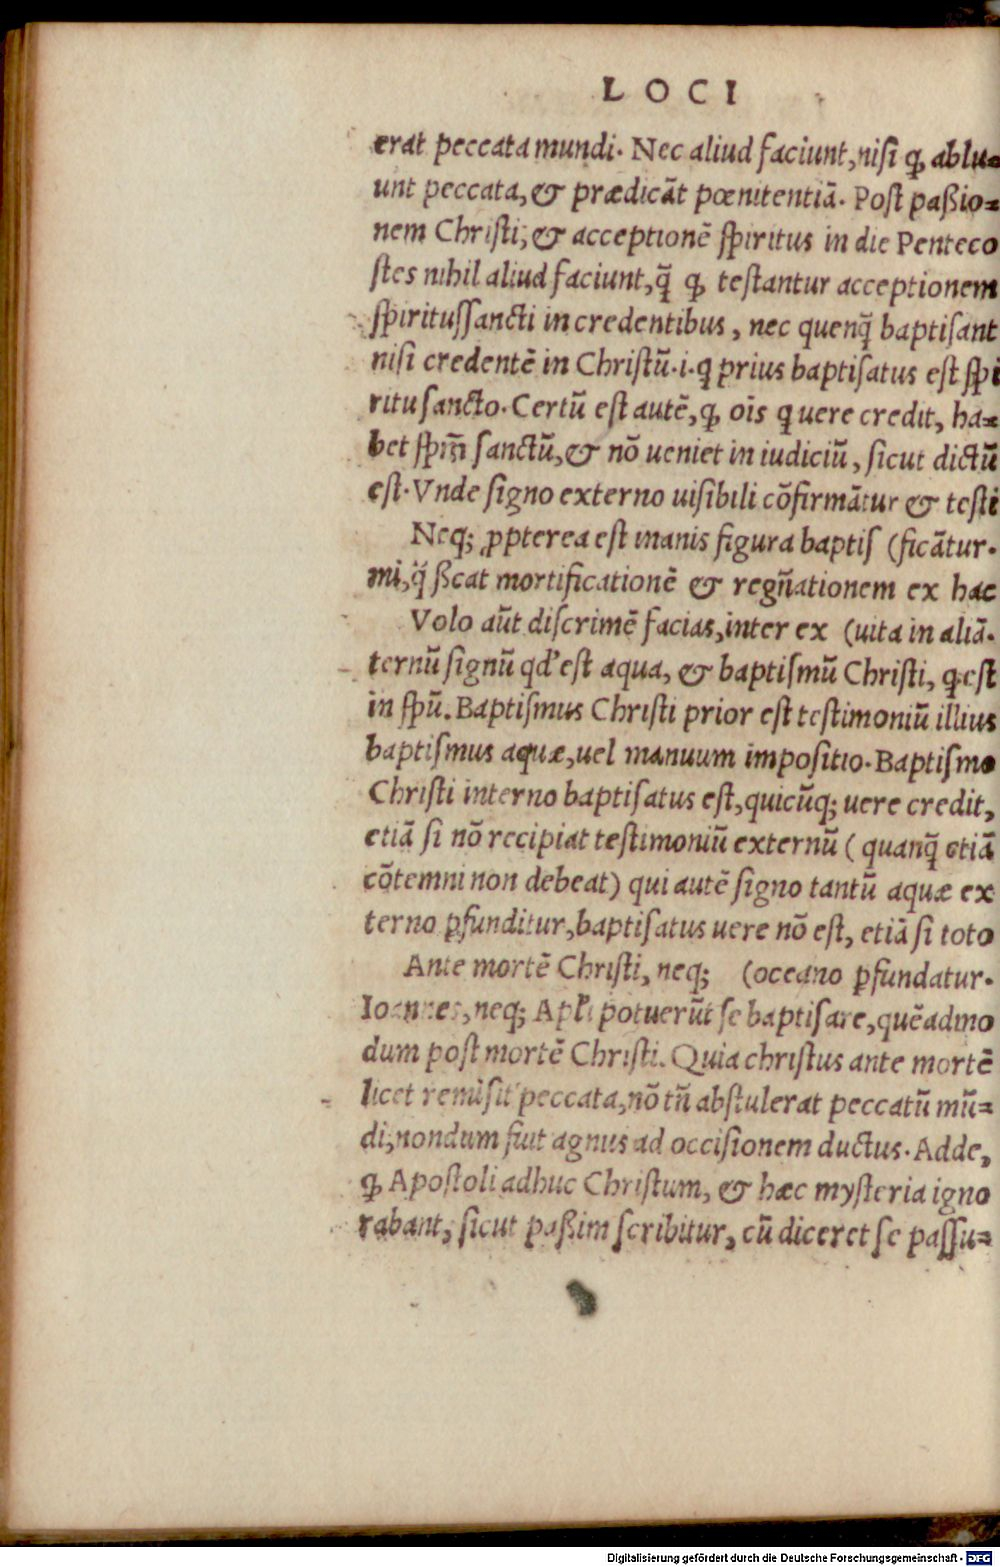 LOCI
erat peccata mundi. Nec aliud faciunt, nisi ꝙ ablu=
unt peccata, & prædicāt pœnitentiā. Post paßio=
nem Christi, & acceptionē spiritus in die Penteco
stes nihil aliud faciunt, q̃ ꝙ testantur acceptionem
spiritussancti in credentibus, nec quenq̃ baptisant
nisi credentē in Christū.i.q prius baptisatus est spi
ritu sancto. Certū est autē, ꝙ oīs q uere credit, ha=
bet spm̄ sanctū, & nō ueniet in iudiciū, sicut dictū
est. Vnde signo externo uisibili cōfirmātur & testi
Neq; ꝓpterea est inanis figura baptis (ficātur.
mi, q̃ ßcat mortificationē & regn̄ationem ex hac
Volo aūt discrimē facias, inter ex (uita in aliā.
ternū signū qd' est aqua, & baptismū Christi, q est
in spū. Baptismus Christi prior est testimoniū illius
baptismus aquæ, uel manuum impositio. Baptismo
Christi interno baptisatus est, quicūq; uere credit,
etiā si nō recipiat testimoniū externū ( quanq̃ etiā
cōtemni non debeat) qui autē signo tantū aquæ ex
terno ꝑfunditur, baptisatus uere nō est, etiā si toto
Ante mortē Christi, neq; (oceano ꝑfundatur.
Ioannes, neq; Apl'i potuerūt se baptisare, quēadmo
dum post mortē Christi. Quia christus ante mortē
licet remisit peccata, nō tñ abstulerat peccatū mū=
di, nondum fuit agnus ad occisionem ductus. Adde,
ꝙ Apostoli adhuc Christum, & hæc mysteria igno
rabant, sicut paßim scribitur, cū diceret se passu=
Digitalisierung gefördert durch die Deutsche Forschungsgemeinschaft - DFG